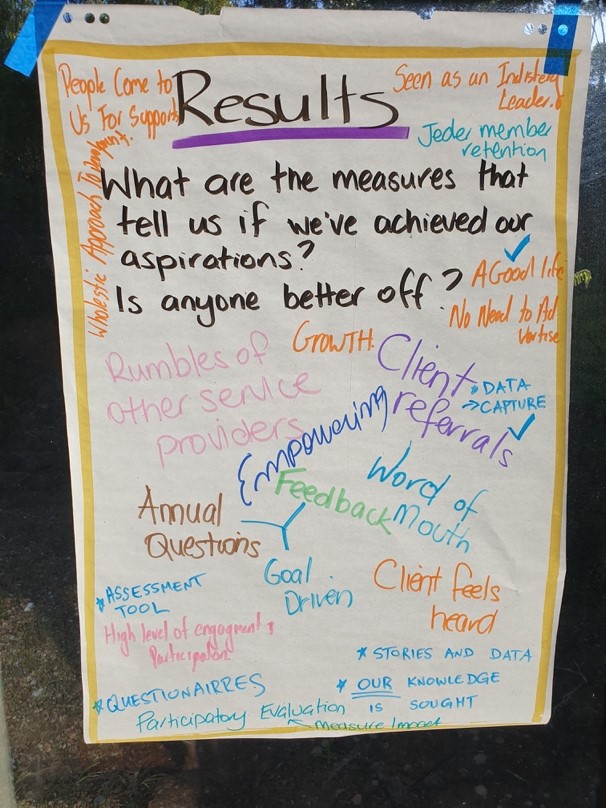 People Come to
Us For Support
Results
Seen as an Indistery
Leader.
Jeder member
retention
Wholestic Approach To
What are the measures that
tell us if we've achieved our
aspirations?
Is anyone better off?
A Good life
No Need to Ad
vertise
GROWTH
Rumbles of
other service
providers
Client
referrals
DATA
CAPTURE
Empowering
Feedback
Word of
Mouth
Annual
Questions
Goal
Driven
Client feels
heard
* ASSESSMENT
TOOL
High level of engagment &
Participation
* STORIES AND DATA
* QUESTIONAIRRES
* OUR KNOWLEDGE
IS SOUGHT
Participatory Evaluation
measure Impact